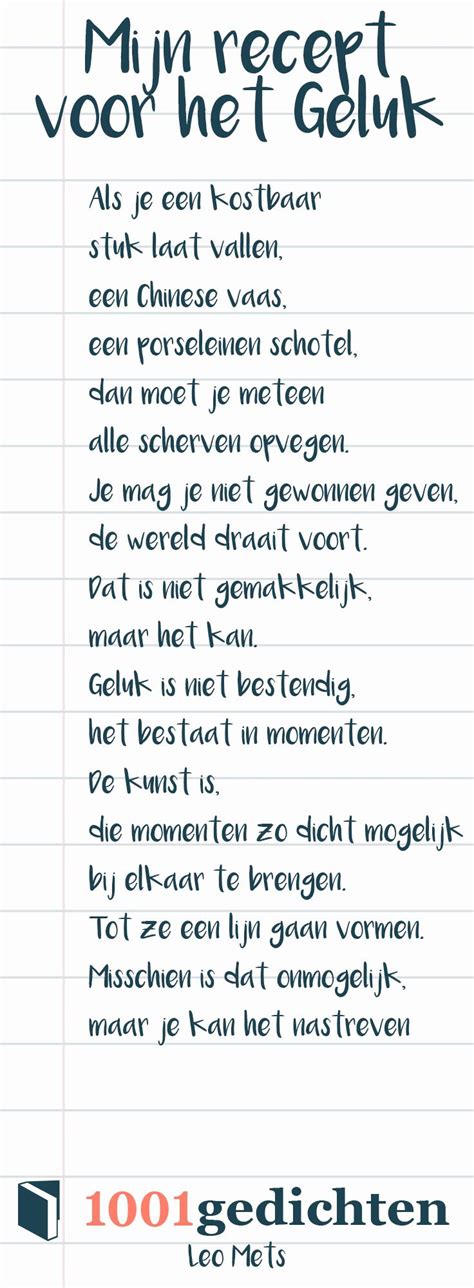 Mijn recept
voor het Geluk
Als je een kostbaar
stuk laat vallen,
een Chinese vaas,
een porseleinen schotel,
dan moet je meteen
alle scherven opvegen.
Je mag je niet gewonnen geven,
de wereld draait voort.
Dat is niet gemakkelijk,
maar het kan.
Geluk is niet bestendig,
het bestaat in momenten.
De kunst is,
die momenten zo dicht mogelijk
bij elkaar te brengen.
Tot ze een lijn gaan vormen.
Misschien is dat onmogelijk,
maar je kan het nastreven
1001gedichten
Leo Mets